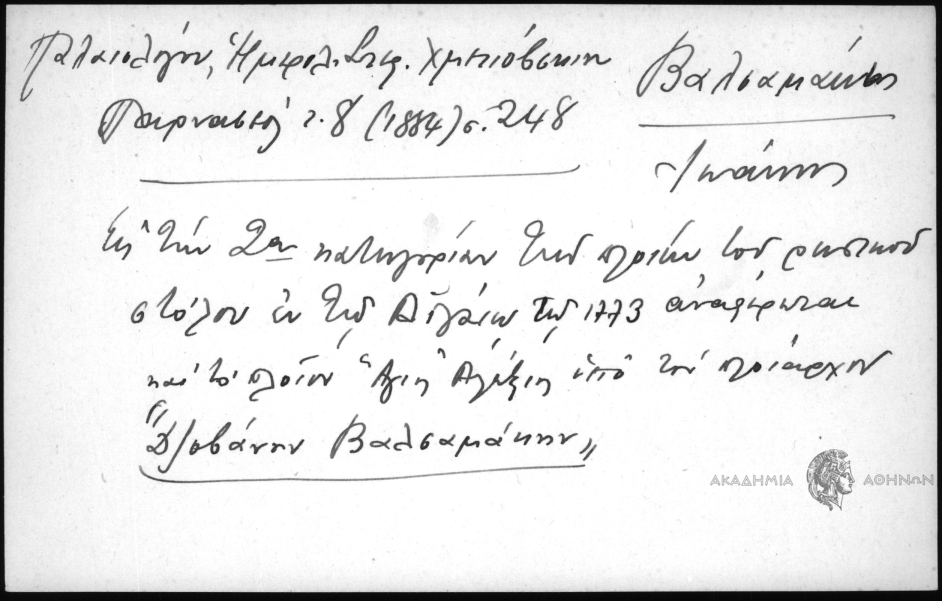 Παλαιολόγου, Ἡμερολ. Στεφ. Χμετιόβσκη
Παρνασσὸς τ. 8 (1884) σ. 248
Βαλσαμάκης
Ἰωάννης
Εἰς τὴν 2αν κατηγορίαν τῶν πλοίων τοῦ ρωσικοῦ
στόλου ἐν τῷ Αἰγαίῳ τῷ 1773 ἀναφέρεται
καὶ τὸ πλοῖον Ἅγιος Ἀλέξης ὑπὸ τὸν πλοίαρχον
"Δζοβάνην Βαλσαμάκην"
ΑΚΑΔΗΜΙΑ ΑΘΗΝΩΝ